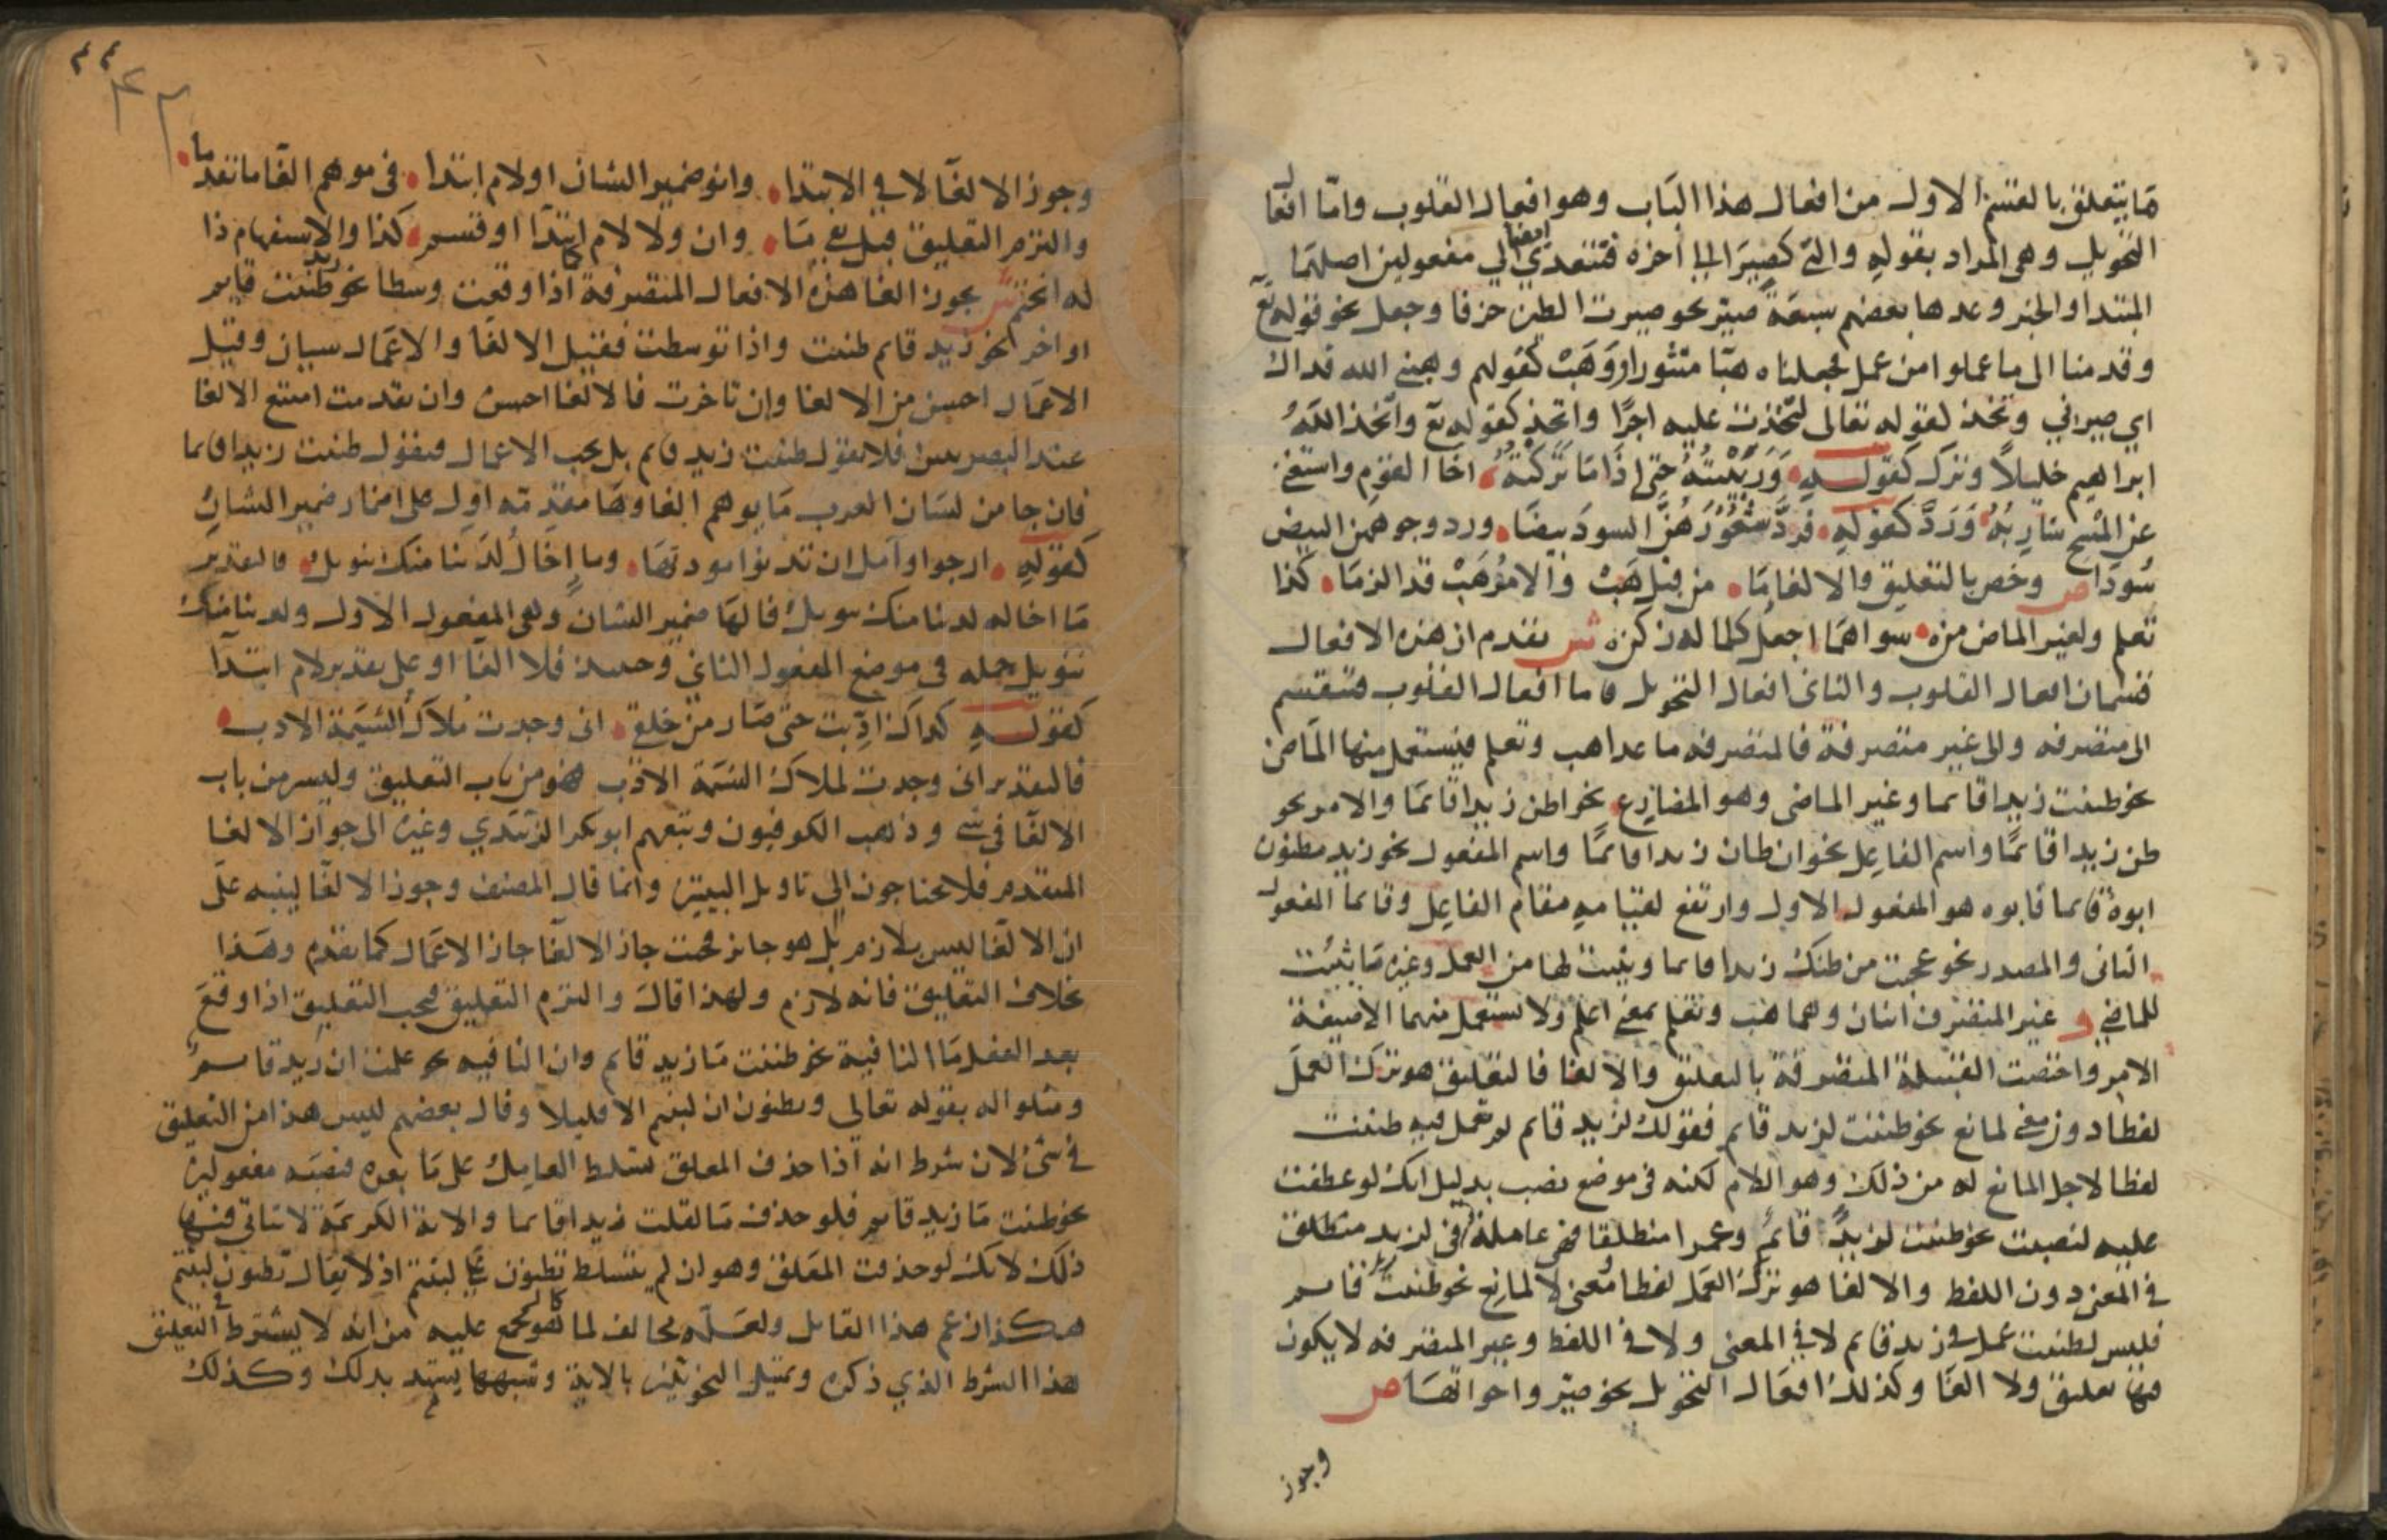 ما يتعلق بالقسم الاول من افعال هذا الباب وهو افعال القلوب واما افعال
التحويل وهي المراد بقوله والتي كصيرا الى اخره فتتعدى ايضا الى مفعولين اصلهما
المبتدا والخبر وعدها بعضهم سبعة صير نحو صيرت الطين خزفا وجعل نحو قوله تع
وقدمنا الى ما عملوا من عمل فجعلناه هبا منثورا ووهب كقولهم وهبني الله فداك
اي صيرني وتخذ لقوله تعالى لتخذت عليه اجرا واتخذ كقوله تع واتخذ الله
ابراهيم خليلا وترك كقوله وربيته حتى اذا ما تركته اخا القوم واستغنى
عن المسح شاربه ورد كقوله فرد شعورهن السود بيضا ورد وجوههن البيض
سودا ص وخص بالتعليق والالغا ما من قبل هب والامر هب قد الزما كذا
تعلم ولغير الماض من سواهما اجعل كلما له زكن ش تقدم ان هذه الافعال
قسمان افعال القلوب والثاني افعال التحويل فاما افعال القلوب فتنقسم
الى متصرفه والى غير متصرفة فالمتصرفه ما عدا هب وتعلم فيستعمل منها الماضي
نحو ظننت زيدا قايما وغير الماضي وهو المضارع نحو اظن زيدا قايما والامر نحو
ظن زيدا قايما واسم الفاعل نحو انا ظان زيدا قايما واسم المفعول نحو زيد مظنون
ابوه قايما فابوه هو المفعول الاول وارتفع لقيامه مقام الفاعل وقايما المفعول
الثاني والمصدر نحو عجبت من ظنك زيدا قايما ويثبت لها من العمل وغيره ما يثبت
للماضي و غير المتصرف اثنان وهما هب وتعلم بمعنى اعلم ولا يستعمل منهما الا صيغة
الامر واختصت القلبية المتصرفة بالتعليق والالغا فالتعليق هو ترك العمل
لفظا دون معنى لمانع نحو ظننت لزيد قايم فقولك لزيد قايم لم تعمل فيه ظننت
لفظا لاجل المانع له من ذلك وهو اللام لكنه في موضع نصب بدليل انك لو عطفت
عليه لنصبت نحو ظننت لزيد قايم وعمرا منطلقا فهي عاملة في لزيد منطلق
في المعنى دون اللفظ والالغا هو ترك العمل لفظا ومعنى لا لمانع نحو زيد ظننت قايم
فليس لظننت عمل في زيد قايم لا في المعنى ولا في اللفظ وغير المتصرفه لا يكون
فيها تعليق ولا الغا وكذلك افعال التحويل نحو صير واخواتها ص
وجوز
٤٤
٤٣
وجوز الالغا لا في الابتدا وانو ضمير الشان او لام ابتدا في موهم الغا ما تقدما
والتزم التعليق قبل نفي ما وان ولا لام ابتدا او قسم كذا والاستفهام ذا
له انحتم ش يجوز الغا هذه الافعال المتصرفة اذا وقعت وسطا نحو زيد ظننت قايم
او اخرا نحو زيد قايم ظننت واذا توسطت فقيل الالغا والاعمال سيان وقيل
الاعمال احسن من الالغا وان تاخرت فالالغا احسن وان تقدمت امتنع الالغا
عند البصريين فلا تقول ظننت زيد قايم بل يجب الاعمال فتقول ظننت زيدا قايما
فان جا من لسان العرب ما يوهم الغاوها مقدمه اول على اضمار ضمير الشان
كقوله ارجوا وآمل ان تدنوا مودتها وما اخال لدينا منك تنويل فالتقدير
ما اخاله لدينا منك تنويل فالها ضمير الشان وهي المفعول الاول ولدينا منك
تنويل جمله في موضع المفعول الثاني وحينئذ فلا الغا او على تقدير لام ابتدآ
كقوله كذاك ادبت حتى صار من خلقي اني وجدت ملاك الشيمة الادب
فالتقدير اني وجدت لملاك الشيمة الادب فهو من باب التعليق وليس من باب
الالغا في شي وذهب الكوفيون وتبعهم ابو بكر الزبيدي وغيره الى جواز الالغا
المتقدم فلا يحتاجون الى تاويل البيتين وانما قال المصنف وجوز الالغا لينبه على
ان الالغا ليس بلازم بل هو جايز فحيث جاز الالغا جاز الاعمال كما تقدم وهذا
بخلاف التعليق فانه لازم ولهذا قال والتزم التعليق فيجب التعليق اذا وقع
بعد الفعل ما النافية نحو ظننت ما زيد قايم وان النافيه نحو علمت ان زيد قايم
ومثلوا له بقوله تعالى وتظنون ان لبثتم الا قليلا وقال بعضهم ليس هذا من التعليق
في شئ لان شرطه انه اذا حذف المعلق تسلط العامل على ما بعده فنصبه مفعولين
نحو ظننت ما زيد قايم فلو حذفت ما لقلت زيدا قايما والاية الكريمة لا يتاتى فيها
ذلك لانك لو حذفت المعلق وهو ان لم يتسلط تظنون على لبثتم اذ لا يقال تظنون لبثتم
هكذا زعم هذا القايل ولعله مخالف لما هو كالمجمع عليه من انه لا يشترط في التعليق
هذا الشرط الذي ذكره وتمثيل النحويين بالاية وشبهها يشهد بذلك وكذلك